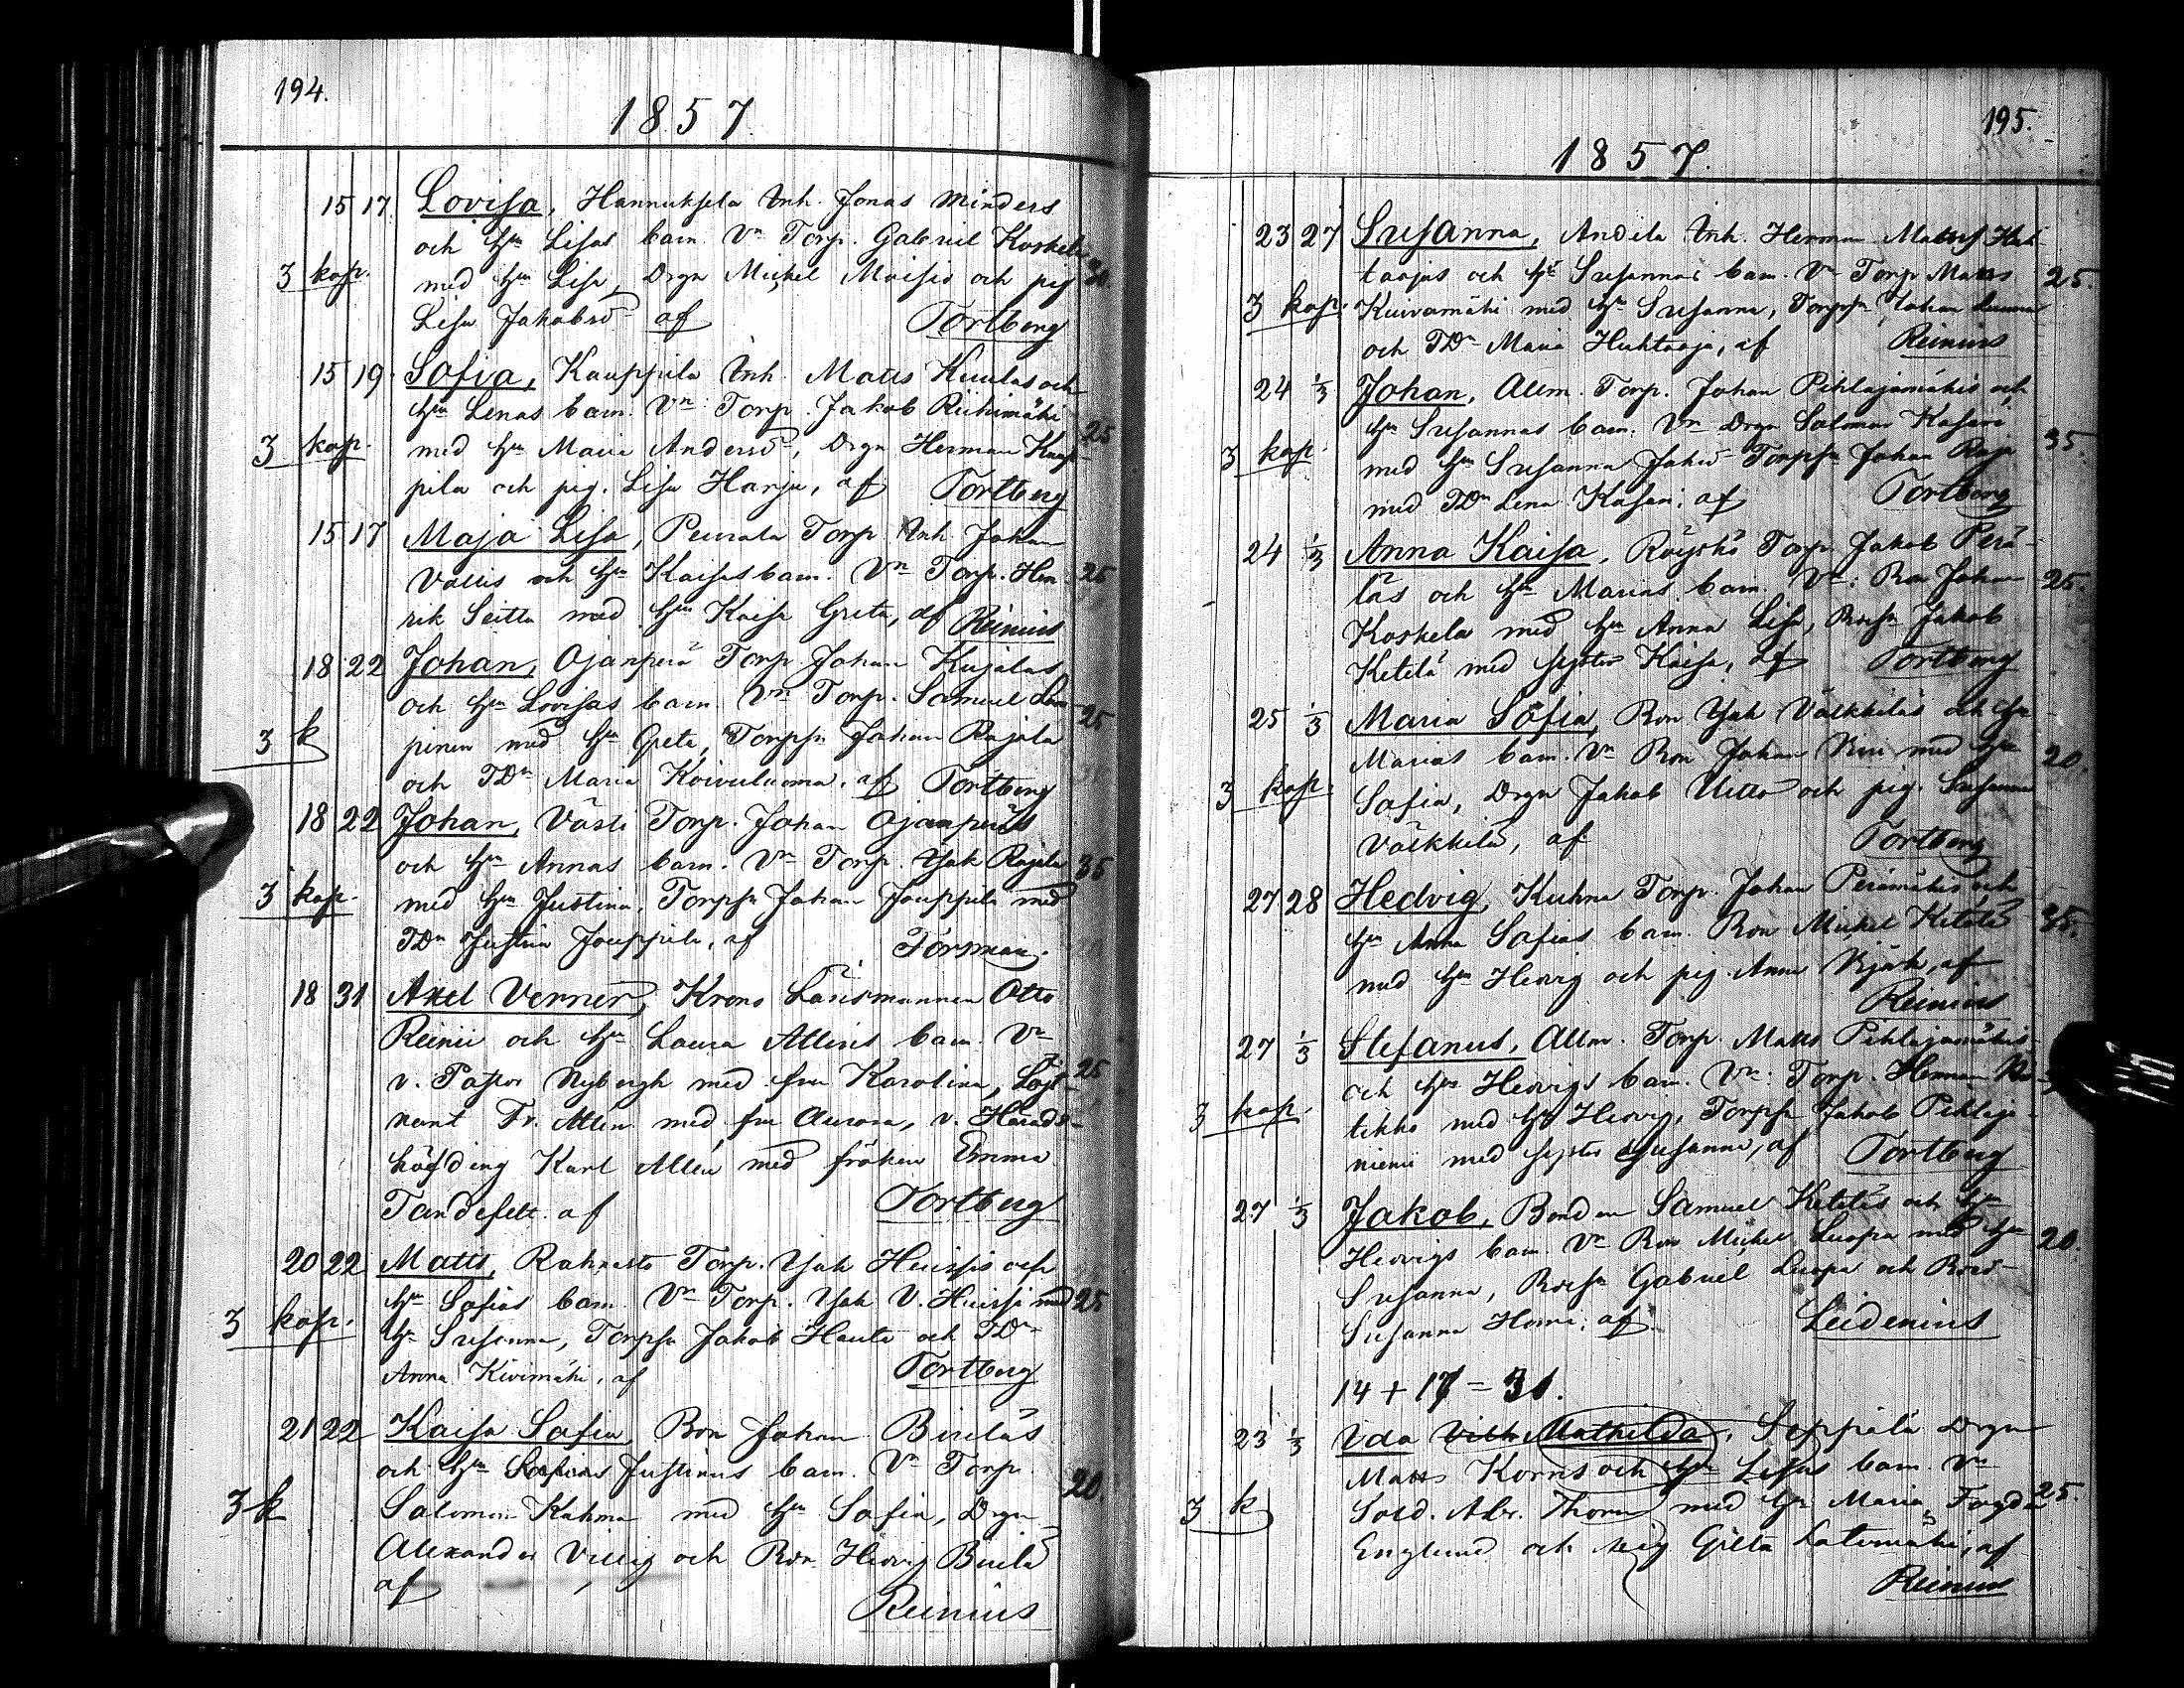 194.
1857.
15 17. Lovisa, Hannuksela Inh. Jonas Minders
och hu Lisas barn. Vn Torp. Gabriel Koskela
3 kop. med hu Lisa, Drgn Michel Maisio och pig 30.
Lisa Jakobsd af Tortberg
15 19. Sofia, Kauppila Inh. Matts Kuulas och
hu Lenas barn. Vn: Torp. Jakob Riihimäki 25
3 kop. med hu Maria Andersd, Drgn Herman Kaup-
pila och pig. Lisa Harju, af Tortberg
15 17 Maja Lisa, Peurala Torp. Inh. Johan
Vallis och hu Kaisas barn. Vn Torp. Hen- 25
rik Seitta med hu Kaisa Greta, af Reinius
18 22 Johan, Ojanperä Torp. Johan Kujalas
och hu Lovisas barn. Vn Torp. Samuel 25
3 k pinen med hu Greta, Torpsn Johan Rajala
och TDn Maria Koivuluoma, af Tortberg
18 22 Johan, Västi Torp. Johan Ojanperäs
och hu Annas barn. Vn Torp. Isak Rajala 35
3 kop. med hu Justina, Torpsn Johan Jouppila med
TDn Justina Jouppila, af Forsman.
18 31 Axel Verner, Krono Länsmannen Otto
Reinii och hu Laura Alléns barn. Vn
v. Pastor Nybergh med fru Karolina, Löjt- 25
nant Fr. Allén med fru Aurora, v. Härads-
höfding Karl Allén med fröken Emma
Tandefelt. af Tortberg
20 22 Matts, Rahnasto Torp. Isak Huissis och
hu Sofias barn. Vn Torp. Isak V. Huissi med 25
3 kop. hu Susanna, Torpsn Jakob Hauta och TDn
Anna Kivimäki, af Tortberg
21 22 Kaisa Sofia, Bon Johan Builäs
och hu Justinas barn. Vn Torp. 20.
3 k Salomon Kahma med hu Sofia, Drgn
Alexander Villig och Bdn Hedvig Buila
af
Reinius
195.
1857.
23 27 Susanna, Andila Inh. Herman Matts Huh-
taajas och hu Susannas barn. Vn Torp Matts 25.
3 kop. Kuivamäki med hu Susanna, Torpsn Johan Luoma
och TDn Maria Huhtaaja, af Reinius
24 1/3 Johan, Allm. Torp. Johan Pihlajamäkis och
hu Susannas barn. Vn Drgn Salomon Kasari 35.
3 kop. med hu Susanna Jakd Torpsn Johan Raja
med TDn Lena Kasari, af Tortberg
24 1/3 Anna Kaisa, Röyskö Torp. Jakob Perä-
läs och hu Marias barn. Vn: Bon Johan 25.
Koskela med hu Anna Lisa, Bdesn Jakob
Ketelä med syster Kaisa, af Tortberg
25 1/3 Maria Sofia, Bon Isak Välkkiläs och hu
Marias barn. Vn Bon Johan Niri med hu 20.
3 kop. Sofia, Drgn Jakob Uitto och pig. Susanna
Välkkilä, af Tortberg
27 28 Hedvig, Kuhna Torp. Johan Perämäkis och
hu Anna Sofias barn. Bon Michel Ketelä 35.
med hu Hedvig och pig. Anna Njärh, af
Reinius
27 1/3 Stefanus, Allm. Torp. Matts Pihlajamäkis
och hu Hedvigs barn. Vn: Torp. Herman
3 kop. tikko med hu Hedvig, Torpsn Jakob Pihlaja-
niemi med syster Susanna, af Tortberg
27 1/3 Jakob, Bonden Samuel Keteläs och hu
Hedvigs barn. Vn Bon Michel Luopa med hu 20.
Susanna, Bdesn Gabriel Luopa och Bdes
Susanna Homi, af Leidenius
14 + 17 = 31.
23 1/3 Ida Mathilda, Seppälä Drgn
Matts Korns och hu Lisas barn. Vn
3 k Sold. Abr. Thorn med hu Maria, Fogden 25.
Englund och pig Greta Latvamäki, af
Reinius